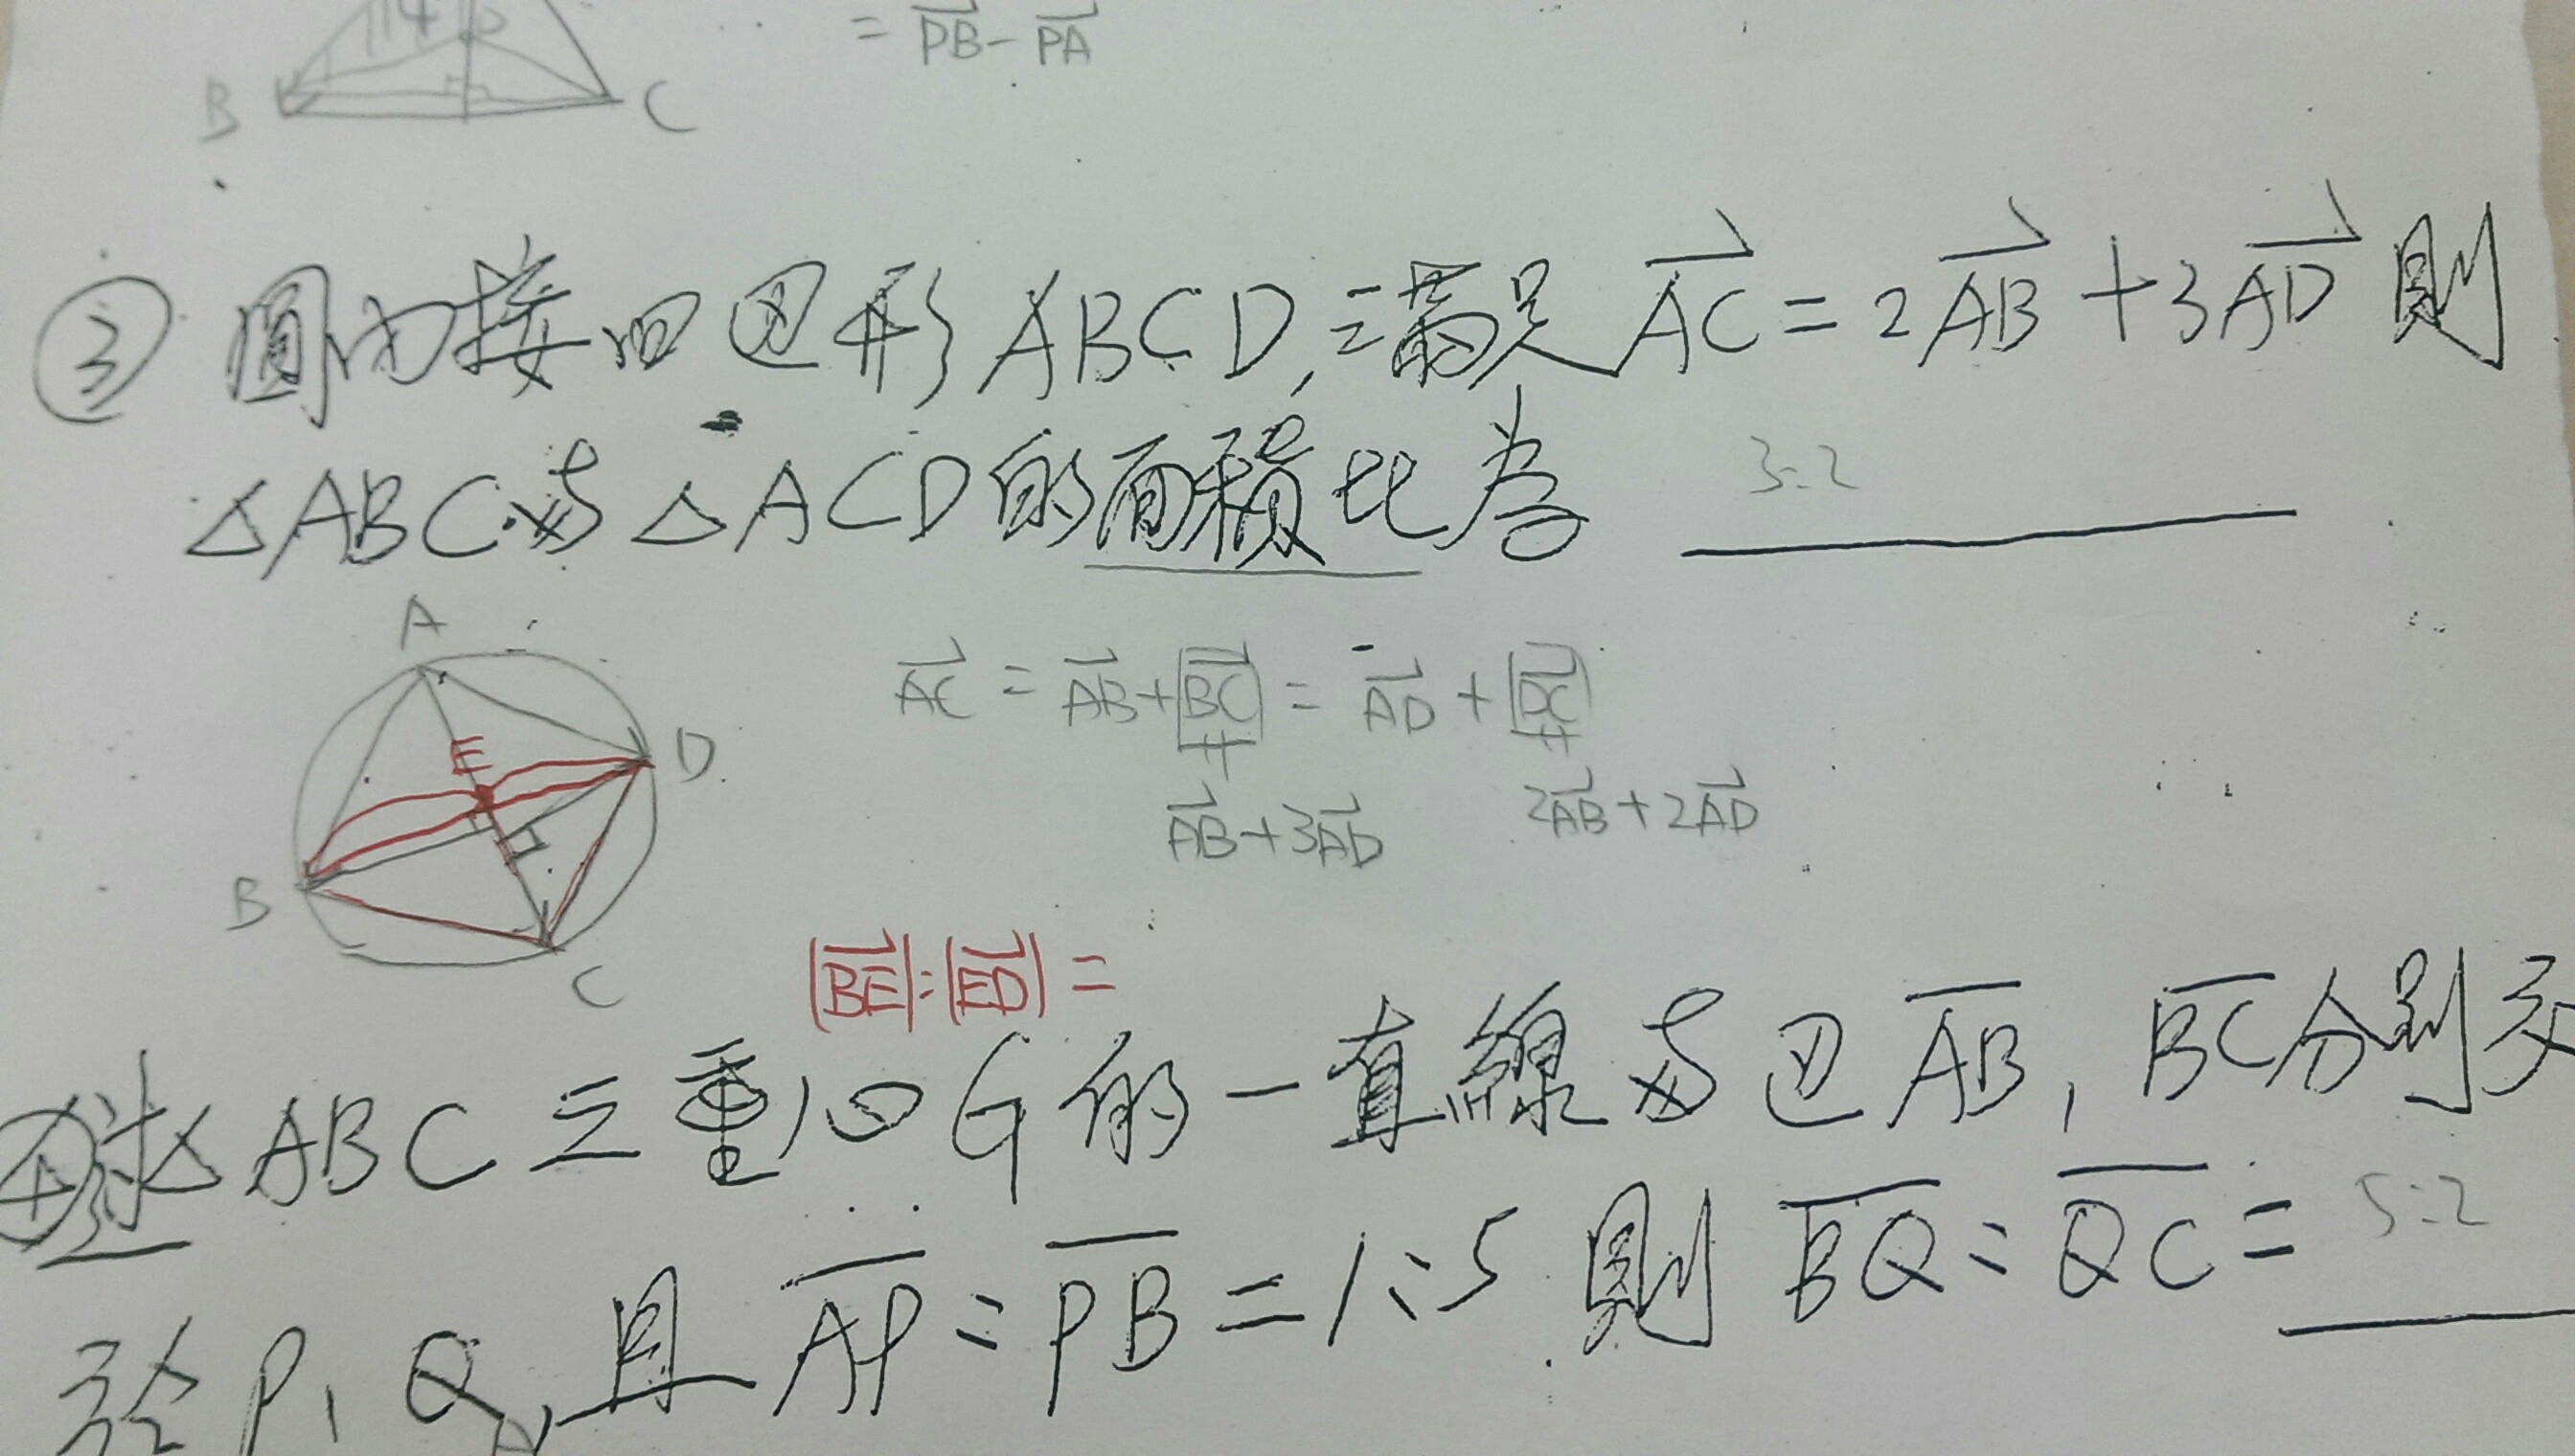 = PB - PA
B C
③ 圓內接四边形ABCD,三滿足 AC = 2AB + 3AD 則
△ABC与△ACD的面積比為 3:2
A
E
D
B
C
AC = AB + BC = AD + DC
AB + 3AD 2AB + 2AD
|BE| : |ED| =
④ 求△ABC三重心G的一直線与边AB,BC分别交
於P、Q,且AP:PB=1:5 則 BQ:QC = 5:2